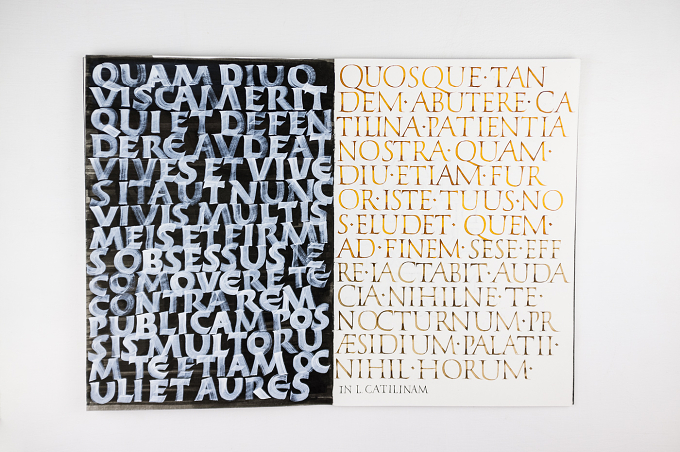 QUAM DIU Q
VISCAM ERIT
QUI ET DEFEN
DERE AVDEAT
VIVES ET VIVE
S ITA UT NUNC
VIVIS MULTIS
MEIS ET FIRMI
S OBSESSUS NE
COMOVERE TE
CONTRA REM
PUBLICAM POS
SIS MULTORU
M TE ETIAM OC
ULI ET AURES
QUOSQUE·TAN
DEM·ABUTERE·CA
TILINA·PATIENTIA
NOSTRA·QUAM·
DIU·ETIAM·FUR
OR·ISTE·TUUS·NO
S·ELUDET·QUEM·
AD·FINEM·SESE·EFF
RE·IACTABIT·AUDA
CIA·NIHILNE·TE·
NOCTURNUM·PR
ÆSIDIUM·PALATII·
NIHIL·HORUM·
IN L CATILINAM